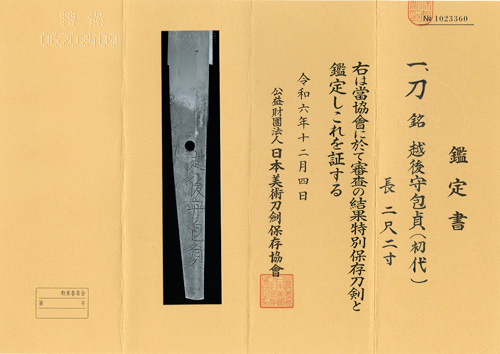 № 1023360
鑑定書
一、刀 銘 越後守包貞(初代)
長 二尺二寸
右は當協會に於て審査の結果特別保存刀剣と
鑑定しこれを証する
令和六年十二月四日
公益財團法人 日本美術刀劍保存協會
越後守包貞
教育委員会
第 号